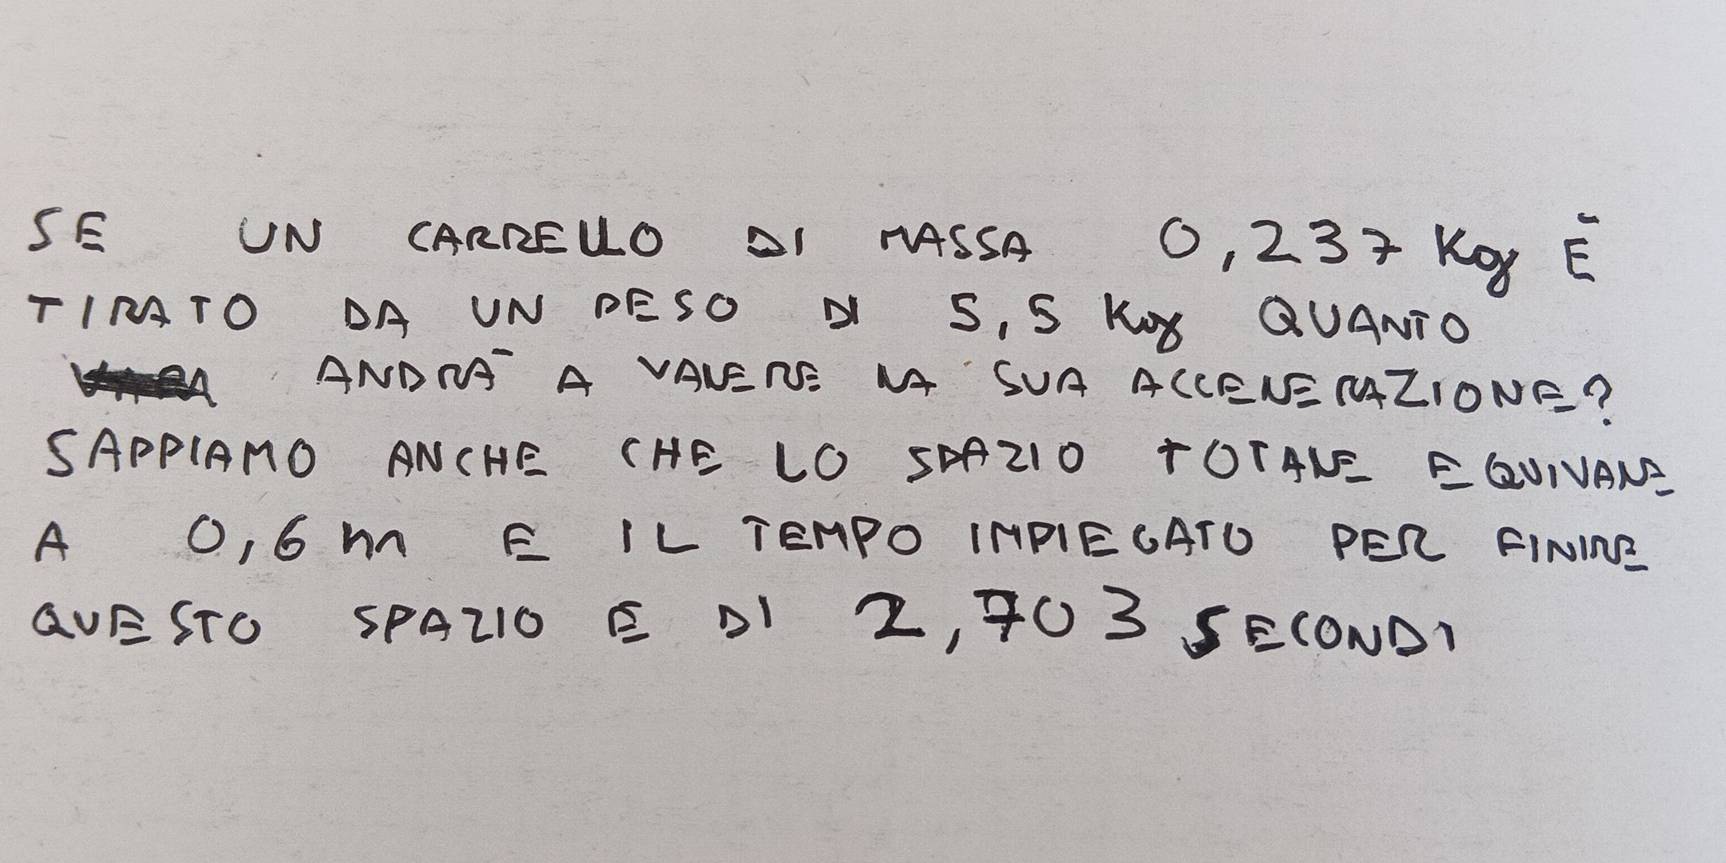 SE UN CARRELLO DI MASSA 0,237 Kg È
TIRATO DA UN PESO DI 5,5 Kg QUANTO
ANDRÀ A VALERE LA SUA ACCELERAZIONE?
SAPPIAMO ANCHE CHE LO SPAZIO TOTALE EQUIVALE
A 0,6 m E IL TEMPO IMPIEGATO PER FINIRE
QUESTO SPAZIO E DI 2,703 SECONDI